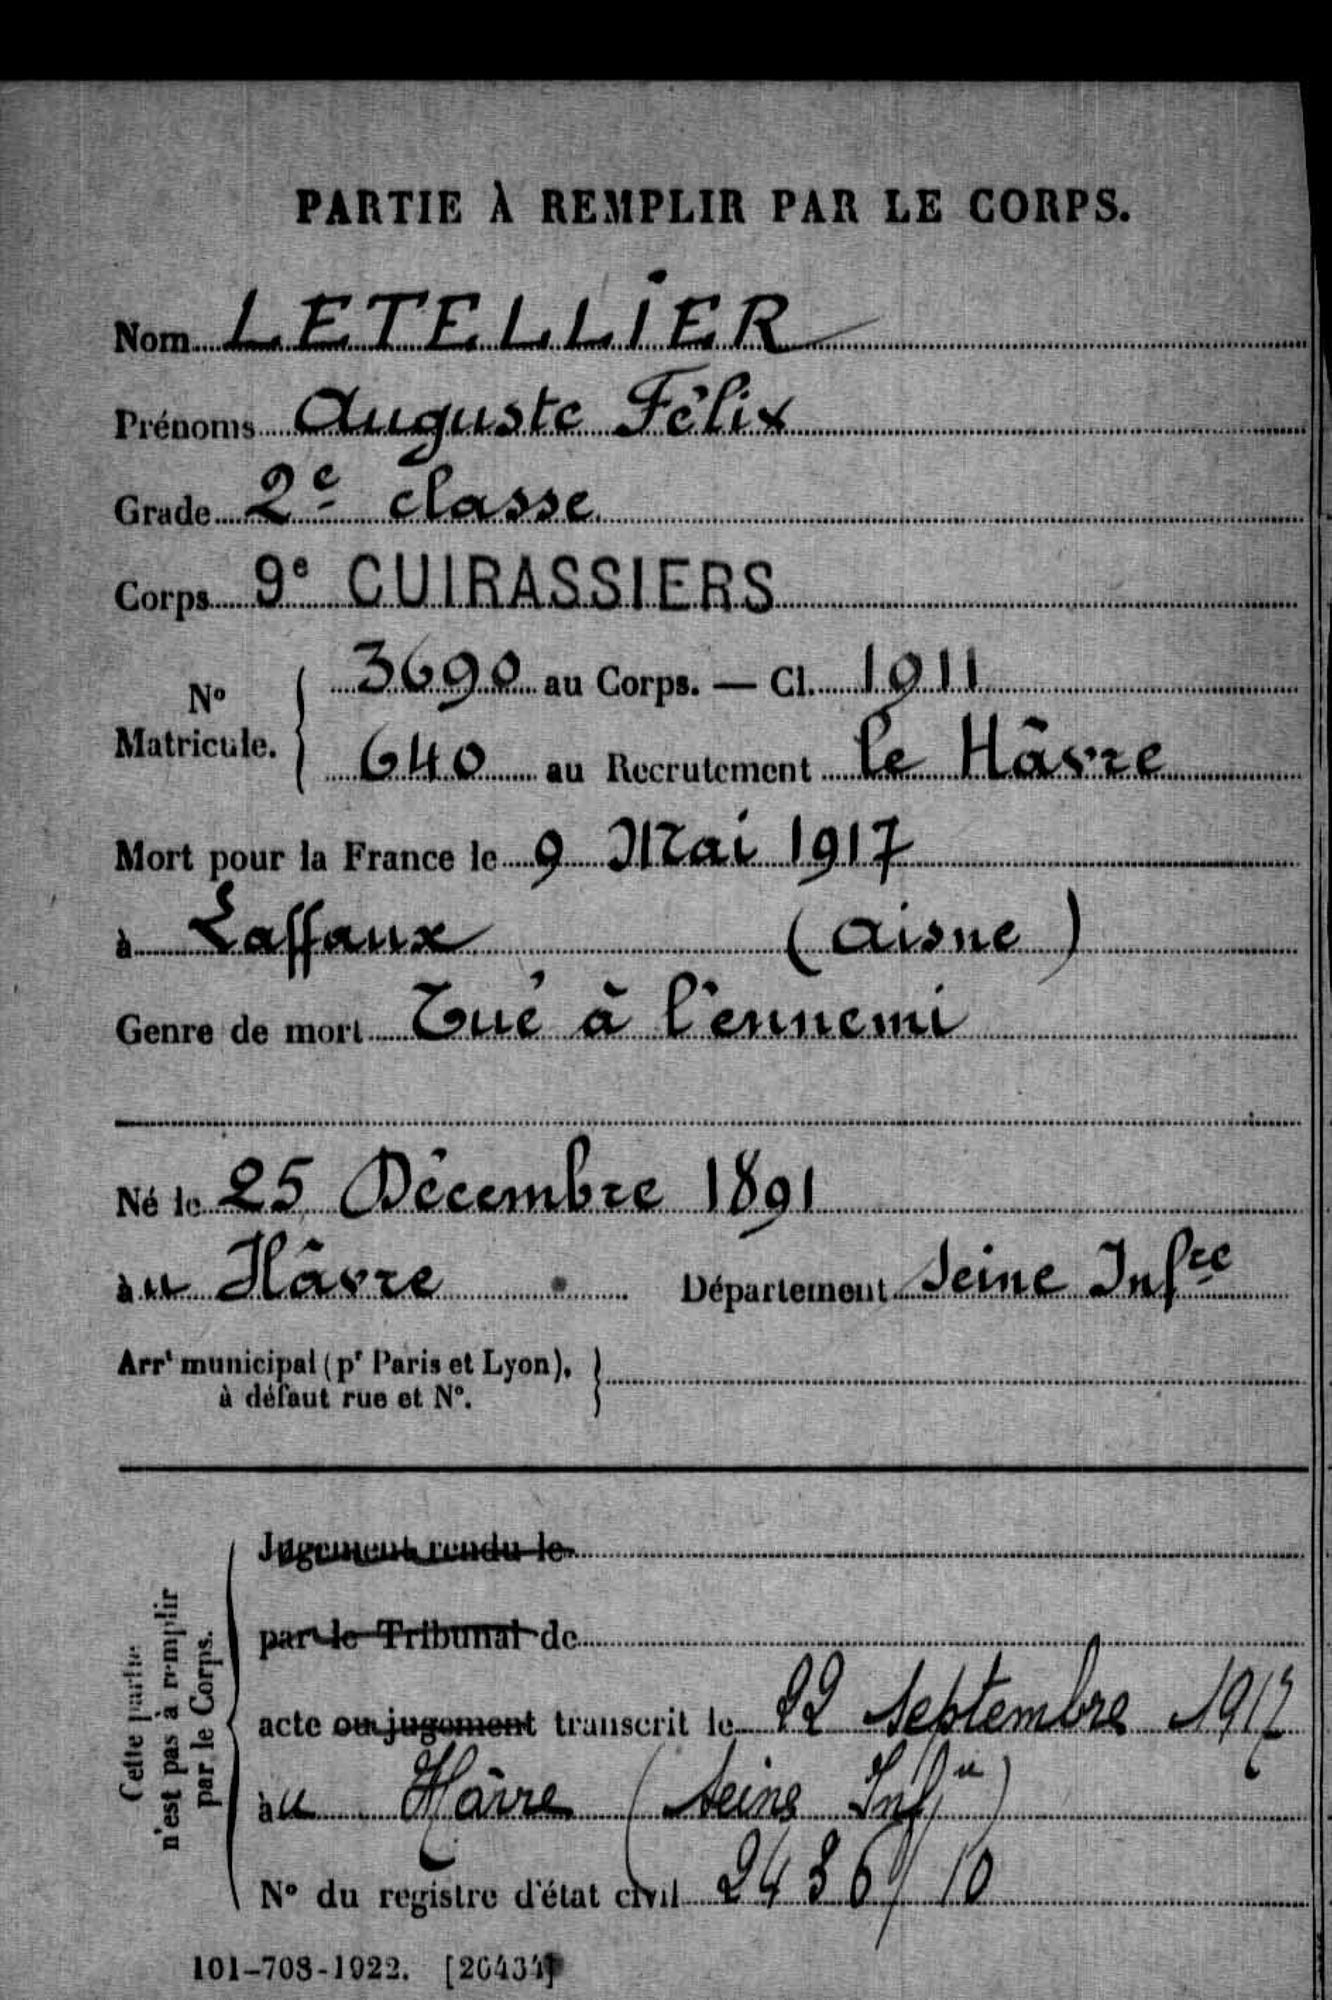 PARTIE À REMPLIR PAR LE CORPS.
Nom LETELLIER
Prénoms Auguste Félix
Grade 2e classe
Corps 9e CUIRASSIERS
No Matricule. { 3690 au Corps. — Cl. 1911
640 au Recrutement le Hâvre
Mort pour la France le 9 Mai 1917
à Laffaux (Aisne)
Genre de mort Tué à l'ennemi
Né le 25 Décembre 1891
au Hâvre Département Seine Infre
Arrt municipal (pr Paris et Lyon), à défaut rue et No. }
Cette partie n'est pas à remplir par le Corps.
Jugement rendu le
par le Tribunal de
acte ou jugement transcrit le 22 Septembre 1917
au Hâvre (Seine Infre)
No du registre d'état civil 2436/10
101-708-1922. [26434]